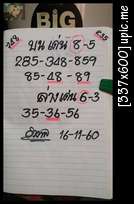 BIG
748
635
บนเด่น 8-5
285-348-859
85-48-89
ล่างเด่น 6-3
35-36-56
16-11-60
[337x600]upic.me